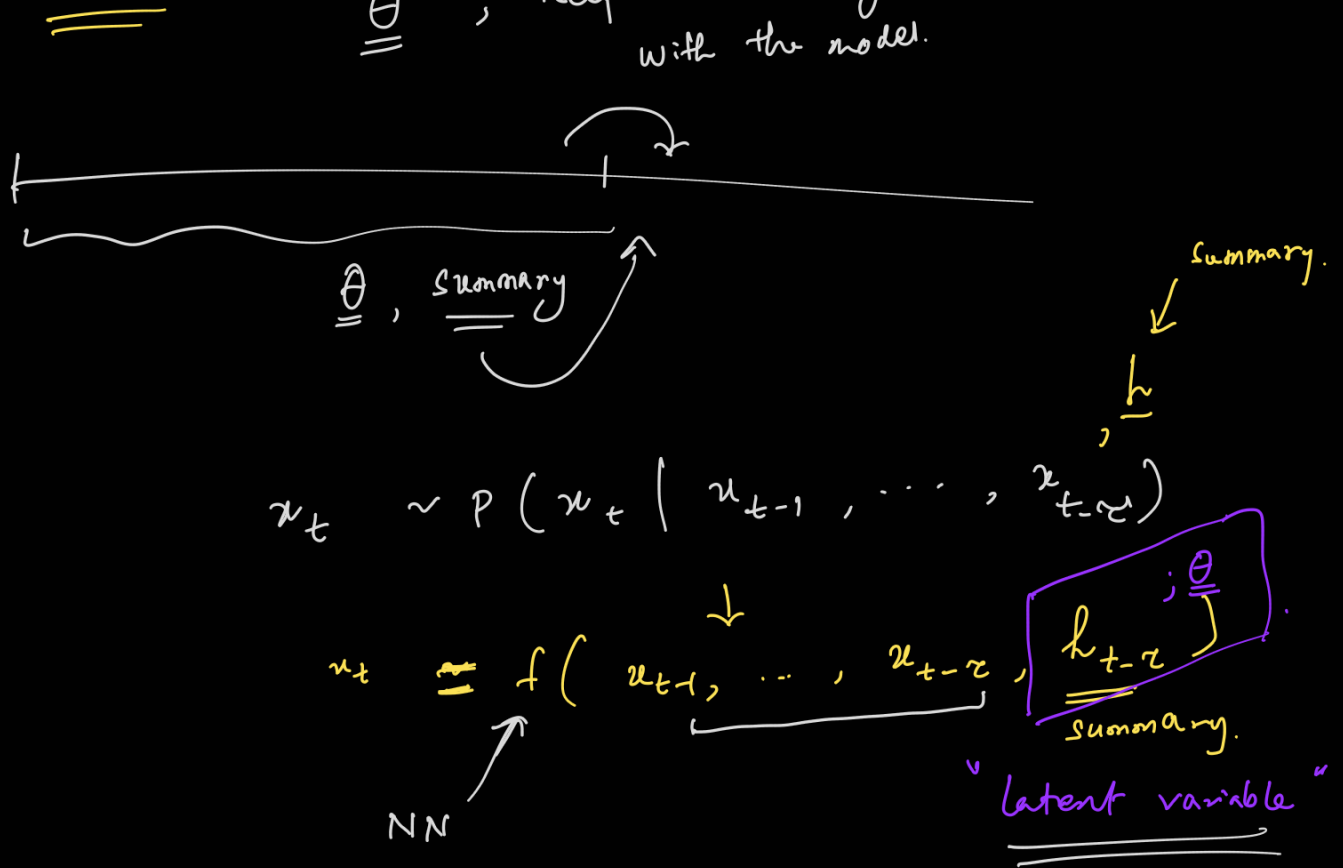 θ ,
with the model.
summary.
θ , summary
, h
x_t ~ P ( x_t | x_{t-1} , ... , x_{t-τ} )
; θ
x_t = f ( x_{t-1}, ... , x_{t-τ} , h_{t-τ} )
summary.
"latent variable"
NN